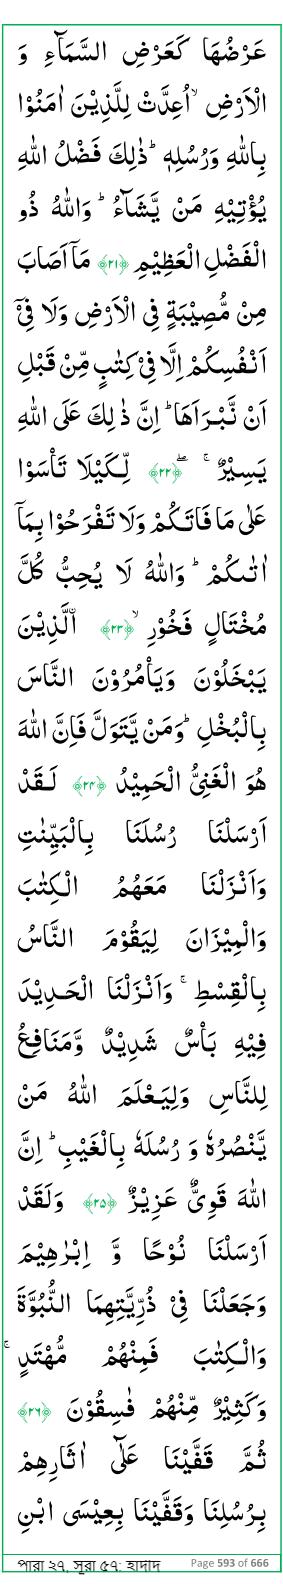 عَرْضُهَا كَعَرْضِ السَّمَآءِ وَ
الْاَرْضِ ۙ اُعِدَّتْ لِلَّذِیْنَ اٰمَنُوْا
بِاللّٰهِ وَرُسُلِهٖ ؕ ذٰلِكَ فَضْلُ اللّٰهِ
یُؤْتِیْهِ مَنْ یَّشَآءُ ؕ وَاللّٰهُ ذُو
الْفَضْلِ الْعَظِیْمِ ﴿۲۱﴾ مَاۤ اَصَابَ
مِنْ مُّصِیْبَةٍ فِی الْاَرْضِ وَلَا فِیْۤ
اَنْفُسِكُمْ اِلَّا فِیْ كِتٰبٍ مِّنْ قَبْلِ
اَنْ نَّبْرَاَهَا ؕ اِنَّ ذٰلِكَ عَلَی اللّٰهِ
یَسِیْرٌ ۚۖ ﴿۲۲﴾ لِّكَیْلَا تَاْسَوْا
عَلٰی مَا فَاتَكُمْ وَلَا تَفْرَحُوْا بِمَاۤ
اٰتٰىكُمْ ؕ وَاللّٰهُ لَا یُحِبُّ كُلَّ
مُخْتَالٍ فَخُوْرِ ۙ ﴿۲۳﴾ اۨلَّذِیْنَ
یَبْخَلُوْنَ وَیَاْمُرُوْنَ النَّاسَ
بِالْبُخْلِ ؕ وَمَنْ یَّتَوَلَّ فَاِنَّ اللّٰهَ
هُوَ الْغَنِیُّ الْحَمِیْدُ ﴿۲۴﴾ لَقَدْ
اَرْسَلْنَا رُسُلَنَا بِالْبَیِّنٰتِ
وَاَنْزَلْنَا مَعَهُمُ الْكِتٰبَ
وَالْمِیْزَانَ لِیَقُوْمَ النَّاسُ
بِالْقِسْطِ ۚ وَاَنْزَلْنَا الْحَدِیْدَ
فِیْهِ بَاْسٌ شَدِیْدٌ وَّمَنَافِعُ
لِلنَّاسِ وَلِیَعْلَمَ اللّٰهُ مَنْ
یَّنْصُرُهٗ وَ رُسُلَهٗ بِالْغَیْبِ ؕ اِنَّ
اللّٰهَ قَوِیٌّ عَزِیْزٌ ﴿۲۵﴾ وَلَقَدْ
اَرْسَلْنَا نُوْحًا وَّ اِبْرٰهِیْمَ
وَجَعَلْنَا فِیْ ذُرِّیَّتِهِمَا النُّبُوَّةَ
وَالْكِتٰبَ فَمِنْهُمْ مُّهْتَدٍ ۚ
وَكَثِیْرٌ مِّنْهُمْ فٰسِقُوْنَ ﴿۲۶﴾
ثُمَّ قَفَّیْنَا عَلٰۤی اٰثَارِهِمْ
بِرُسُلِنَا وَقَفَّیْنَا بِعِیْسَی ابْنِ
পারা ২৭, সূরা ৫৭: হাদীদ Page 593 of 666